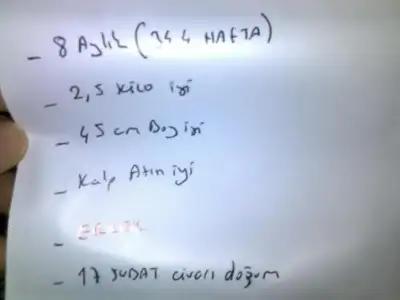 - 8 Aylık (34 4 HAFTA)
- 2,5 Kilo iyi
- 45 cm Boy iyi
- Kalp Atım iyi
-
- 17 ŞUBAT civarı doğum